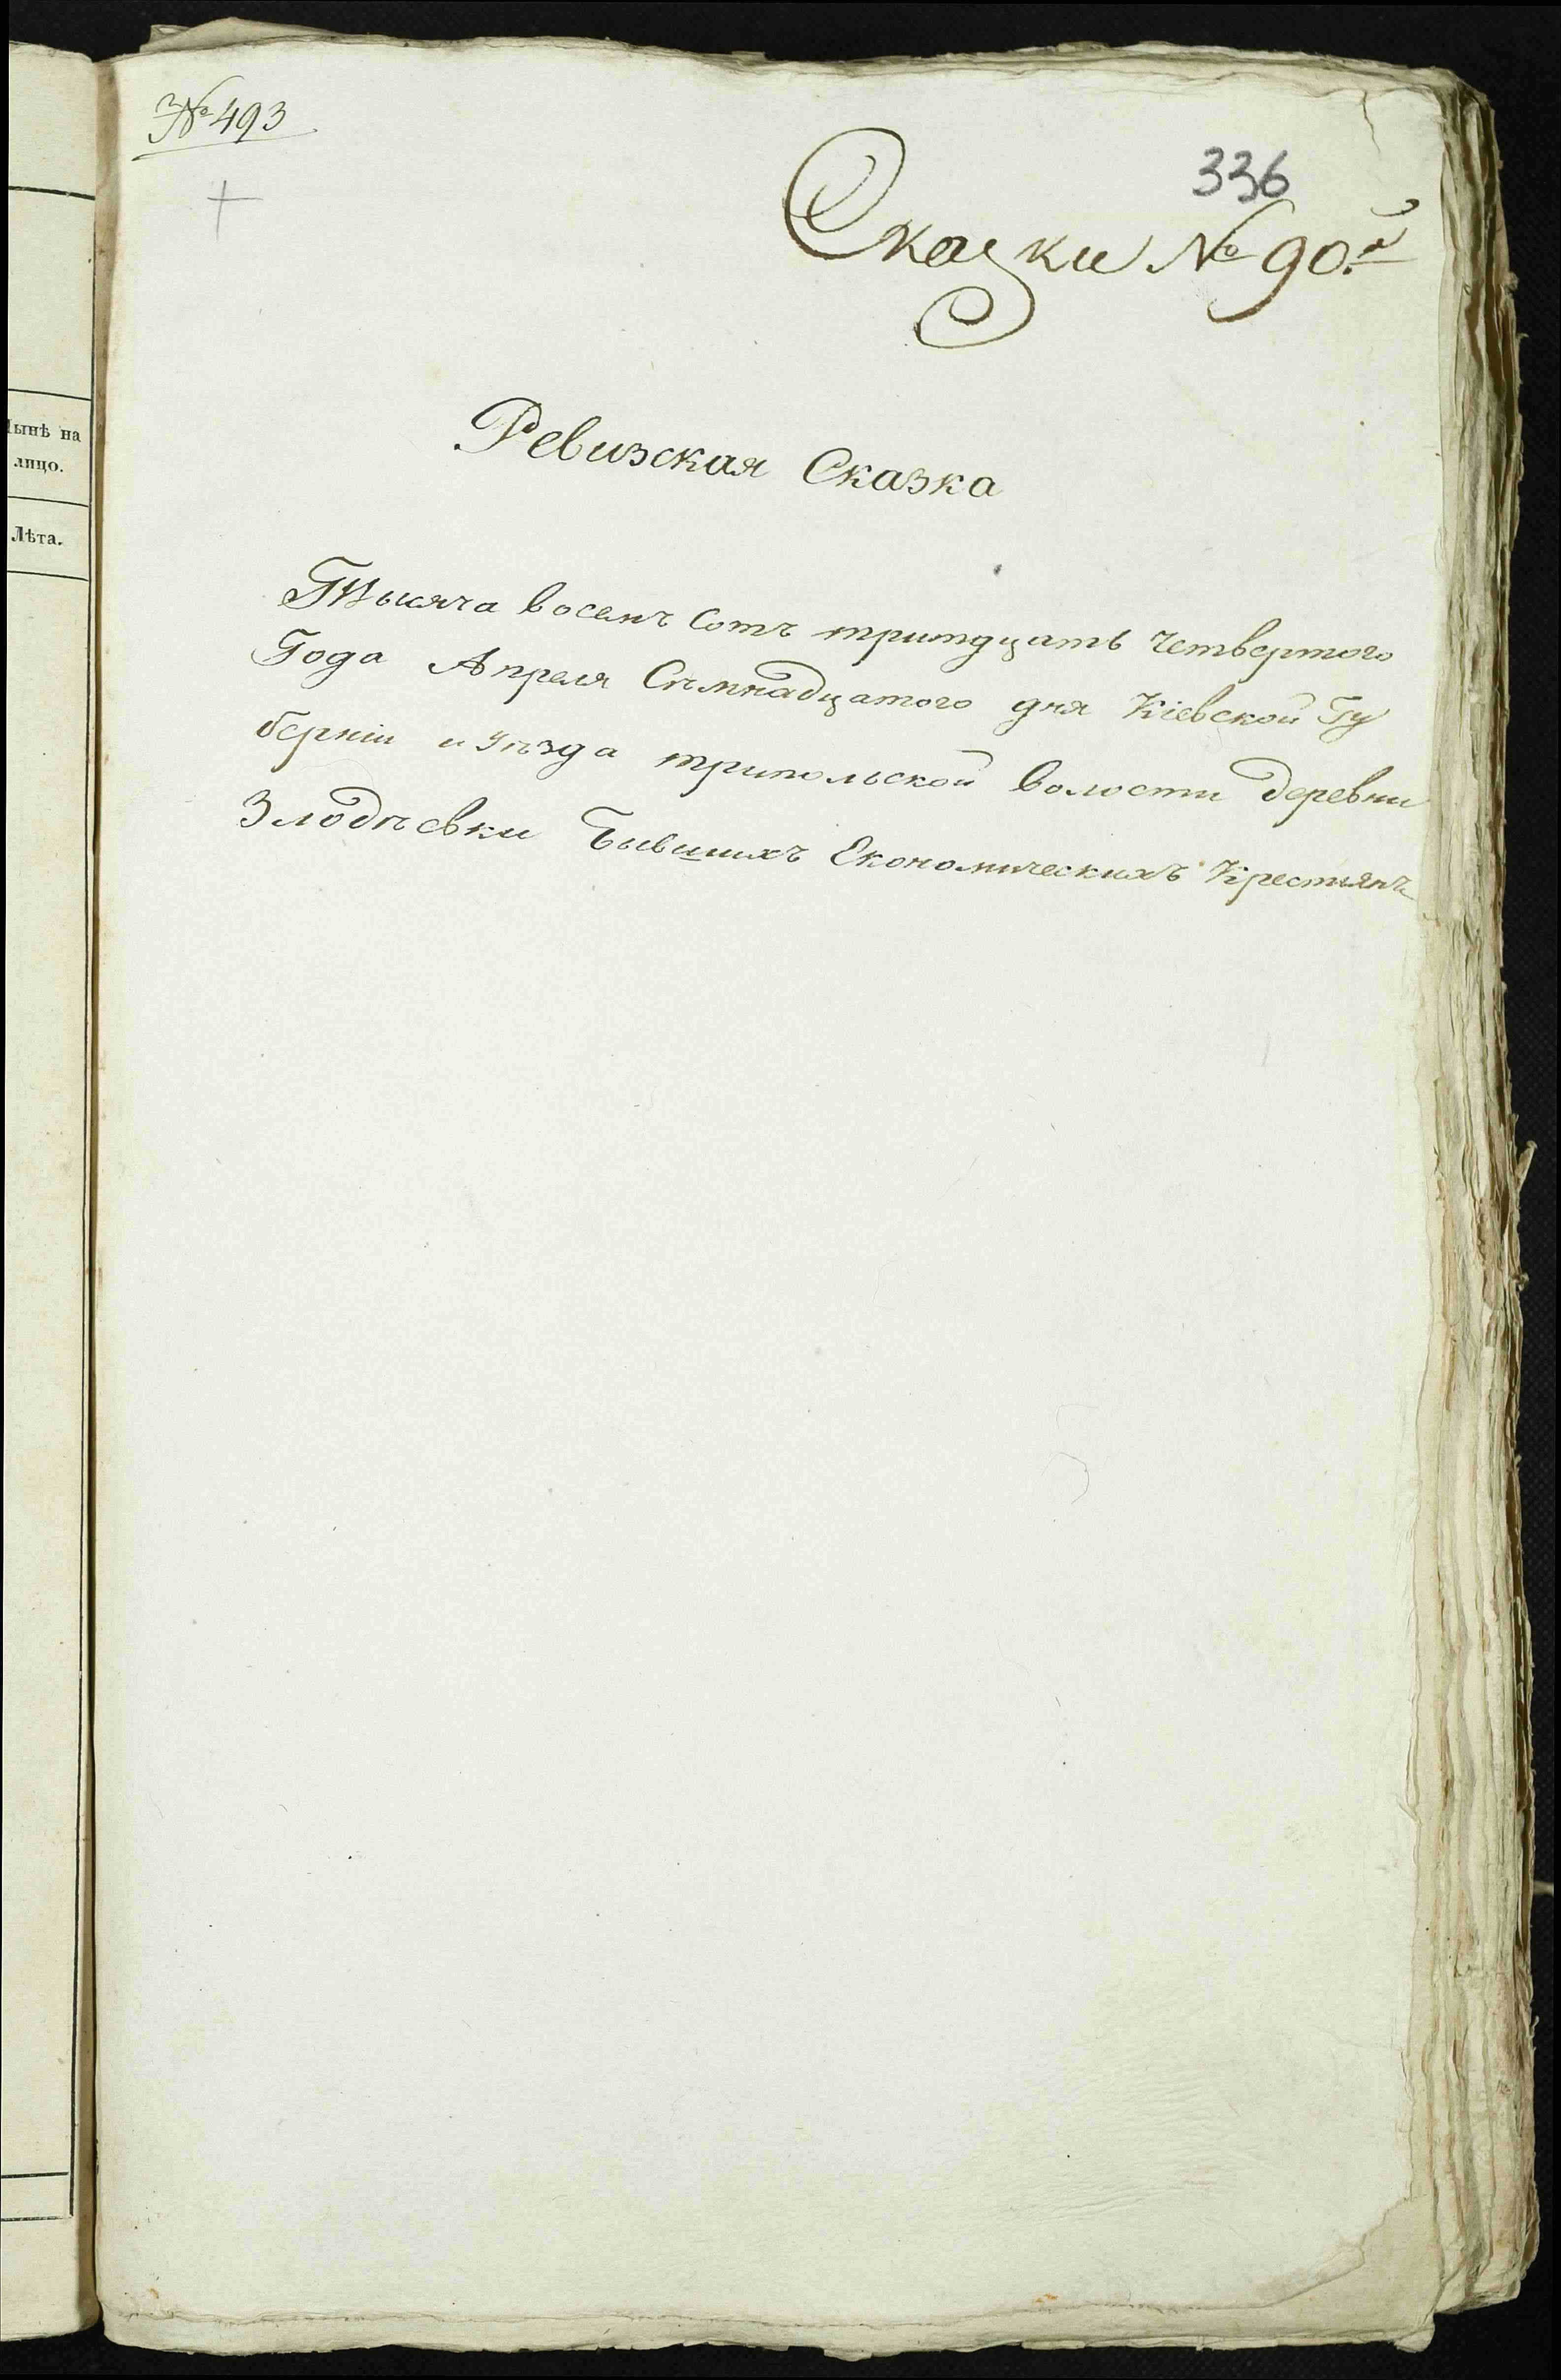 Нынѣ на
лицо.
Лѣта.
№ 493
336
Сказки № 90й
Ревизская Сказка
Тысяча восемъ Сотъ тритдцать Четвертого
Года Апреля Сѣмнадцатого дня Кіевской Гу
берніи и уѣзда трипольской волости деревни
Злодѣевки Бывшихъ Економическихъ Крестьянъ